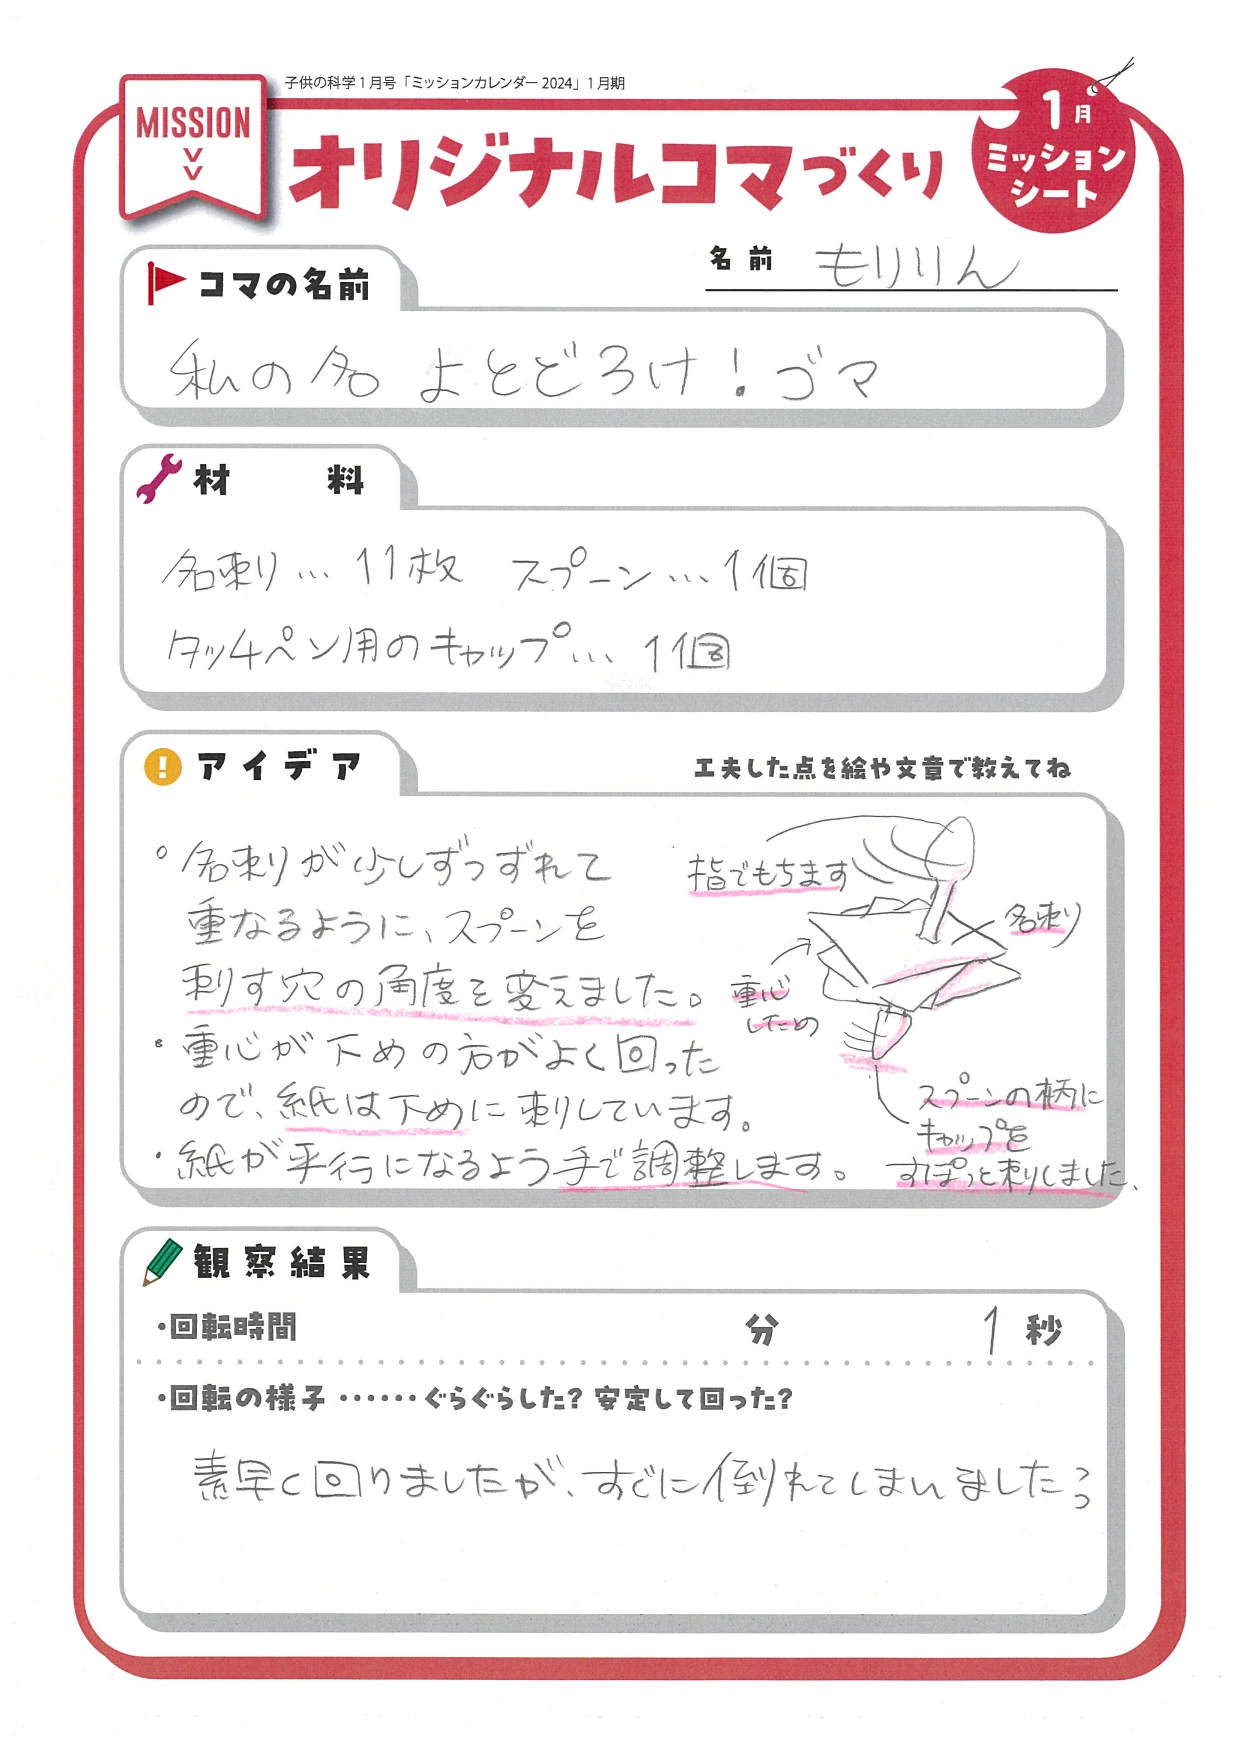 子供の科学1月号「ミッションカレンダー2024」1月期
MISSION
オリジナルコマづくり
1月
ミッション
シート
名前 もりりん
コマの名前
私の名 よとどろけ!ゴマ
材料
名刺…11枚 スプーン…1個
タッチペン用のキャップ…1個
アイデア
工夫した点を絵や文章で教えてね
名刺が少しずつずれて
重なるように、スプーンを
刺す穴の角度を変えました。
・重心が下めの方がよく回った
ので、紙は下めに刺しています。
・紙が平行になるよう手で調整します。
指でもちます
名刺
重心
したの
スプーンの柄に
キャップを
すぽっと刺しました、
観察結果
・回転時間 分 1秒
・回転の様子……ぐらぐらした?安定して回った?
素早く回りましたが、すぐに倒れてしまいました